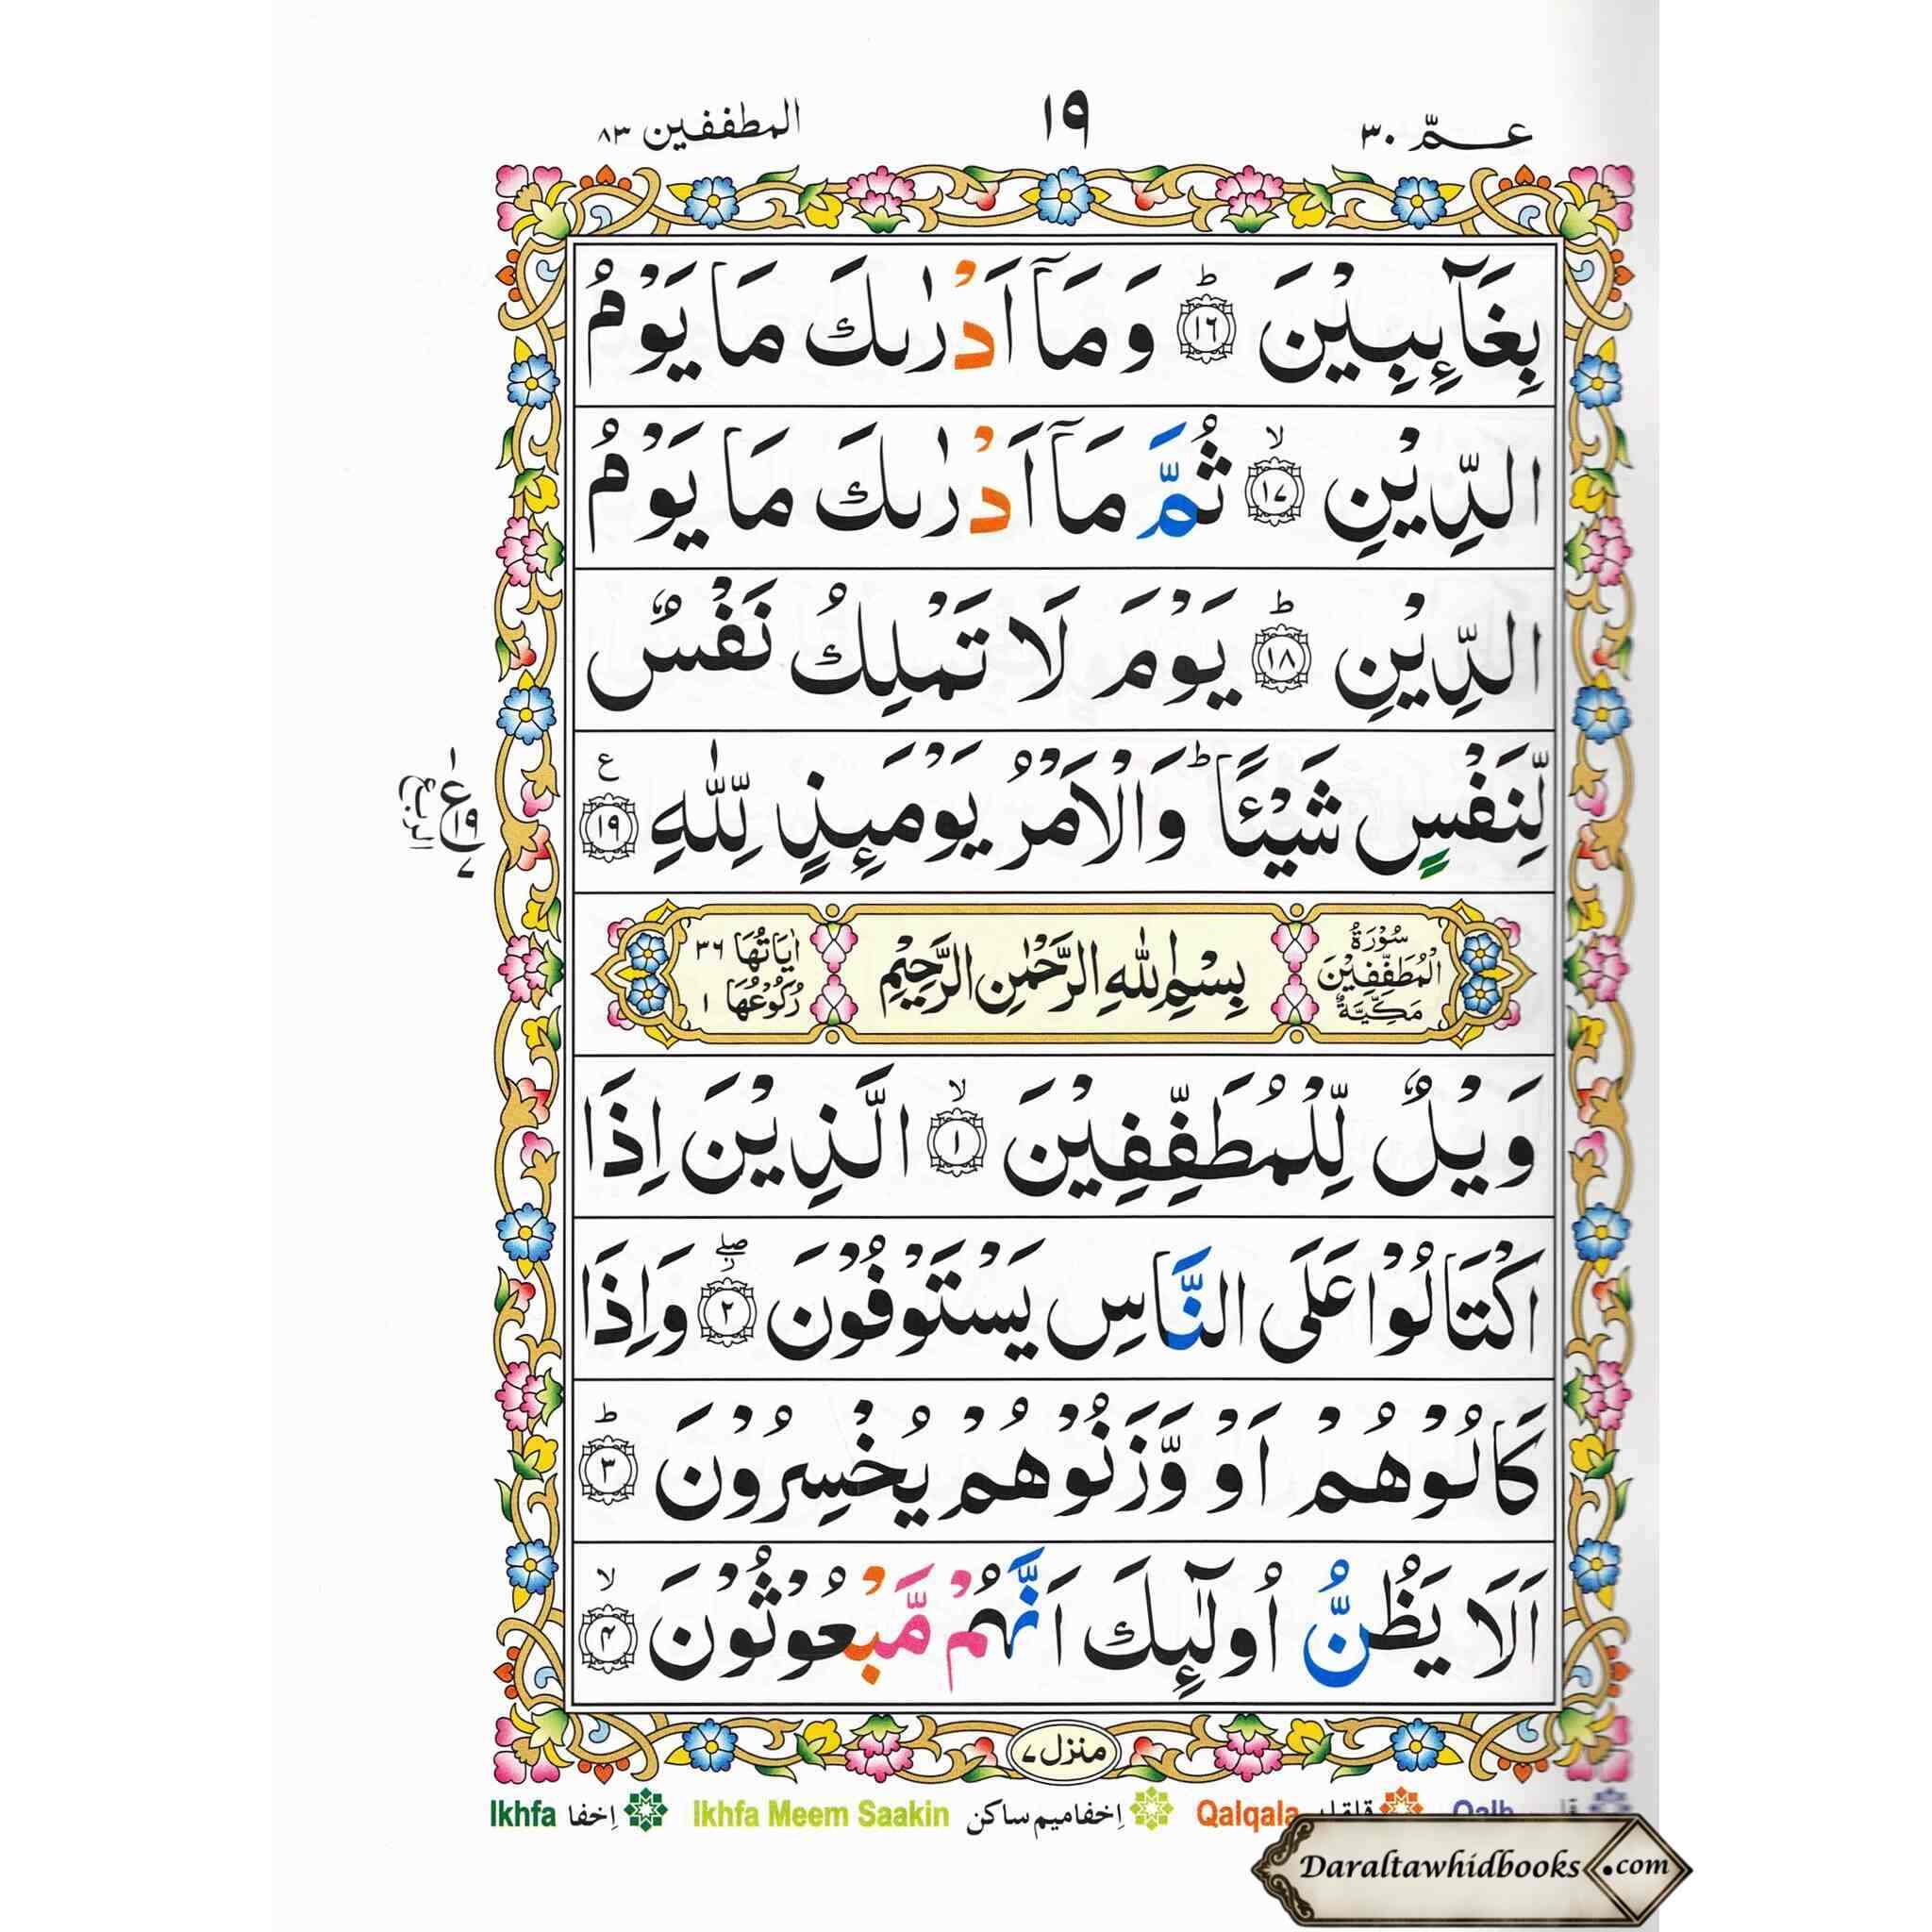 عـــمّ ٣٠ ١٩ المطففین ٨٣
بِغَآئِبِیْنَ ؕ﴿۱۶﴾ وَ مَاۤ اَدْرٰىكَ مَا یَوْمُ
الدِّیْنِ ۙ﴿۱۷﴾ ثُمَّ مَاۤ اَدْرٰىكَ مَا یَوْمُ
الدِّیْنِ ؕ﴿۱۸﴾ یَوْمَ لَا تَمْلِكُ نَفْسٌ
لِّنَفْسٍ شَیْـًٔا ؕ وَ الْاَمْرُ یَوْمَىِٕذٍ لِّلّٰهِ ﴿۱۹﴾ ع
۱
ع
۱۹
۷
الربع
سُوْرَةُ الْمُطَفِّفِیْنَ مَكِّیَّةٌ
بِسْمِ اللّٰهِ الرَّحْمٰنِ الرَّحِیْمِ
اٰیَاتُهَا ٣٦ رُكُوْعُهَا ١
وَیْلٌ لِّلْمُطَفِّفِیْنَ ۙ﴿۱﴾ الَّذِیْنَ اِذَا
اكْتَالُوْا عَلَی النَّاسِ یَسْتَوْفُوْنَ ۖ﴿۲﴾ وَ اِذَا
كَالُوْهُمْ اَوْ وَّزَنُوْهُمْ یُخْسِرُوْنَ ؕ﴿۳﴾
اَلَا یَظُنُّ اُولٰٓىِٕكَ اَنَّهُمْ مَّبْعُوْثُوْنَ ۙ﴿۴﴾
منزل ٧
Ikhfa اِخفا Ikhfa Meem Saakin اِخفامیم ساکن Qalqala قلقلہ Qalb
Daraltawhidbooks.com